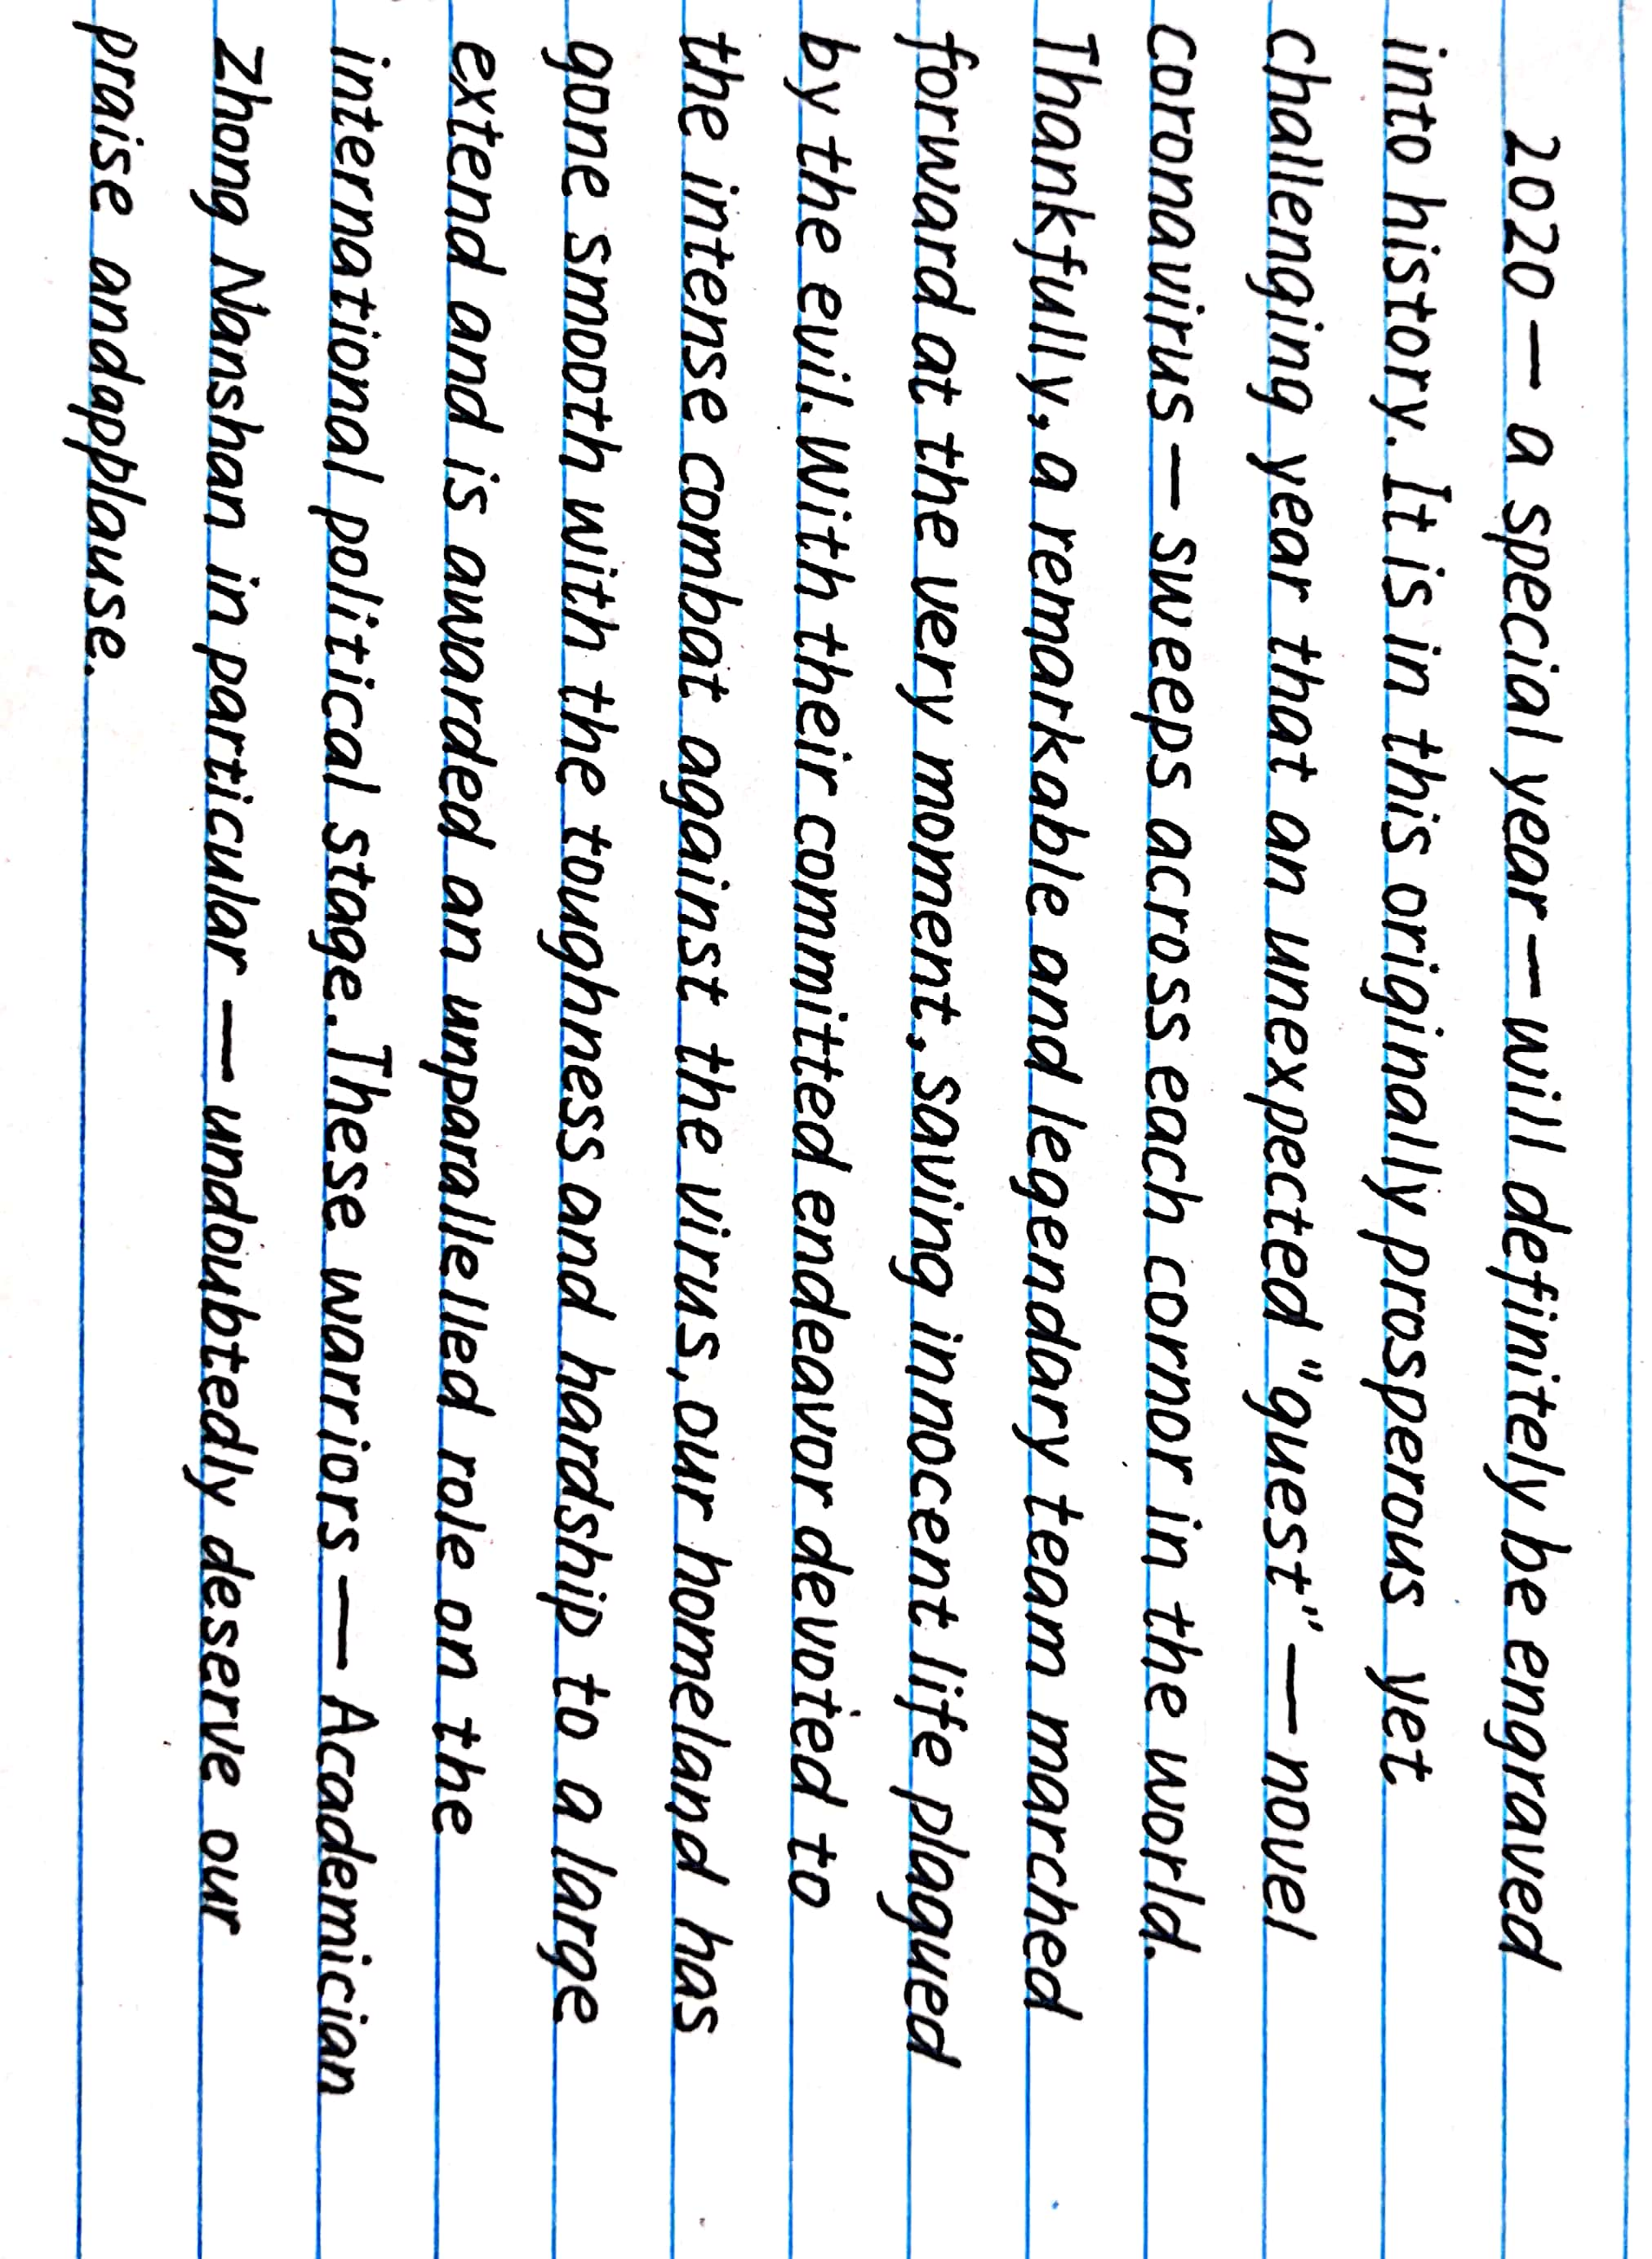 2020 — a special year — will definitely be engraved
into history. It is in this originally prosperous yet
challenging year that an unexpected "guest" — novel
coronavirus — sweeps across each cornor in the world.
Thankfully, a remarkable and legendary team marched
forward at the very moment, saving innocent life plagued
by the evil. With their committed endeavor devoted to
the intense combat against the virus, our homeland has
gone smooth with the toughness and hardship to a large
extend and is awarded an unparallelled role on the
international political stage. These warriors — Academician
Zhong Nanshan in particular — undoubtedly deserve our
praise and applause.